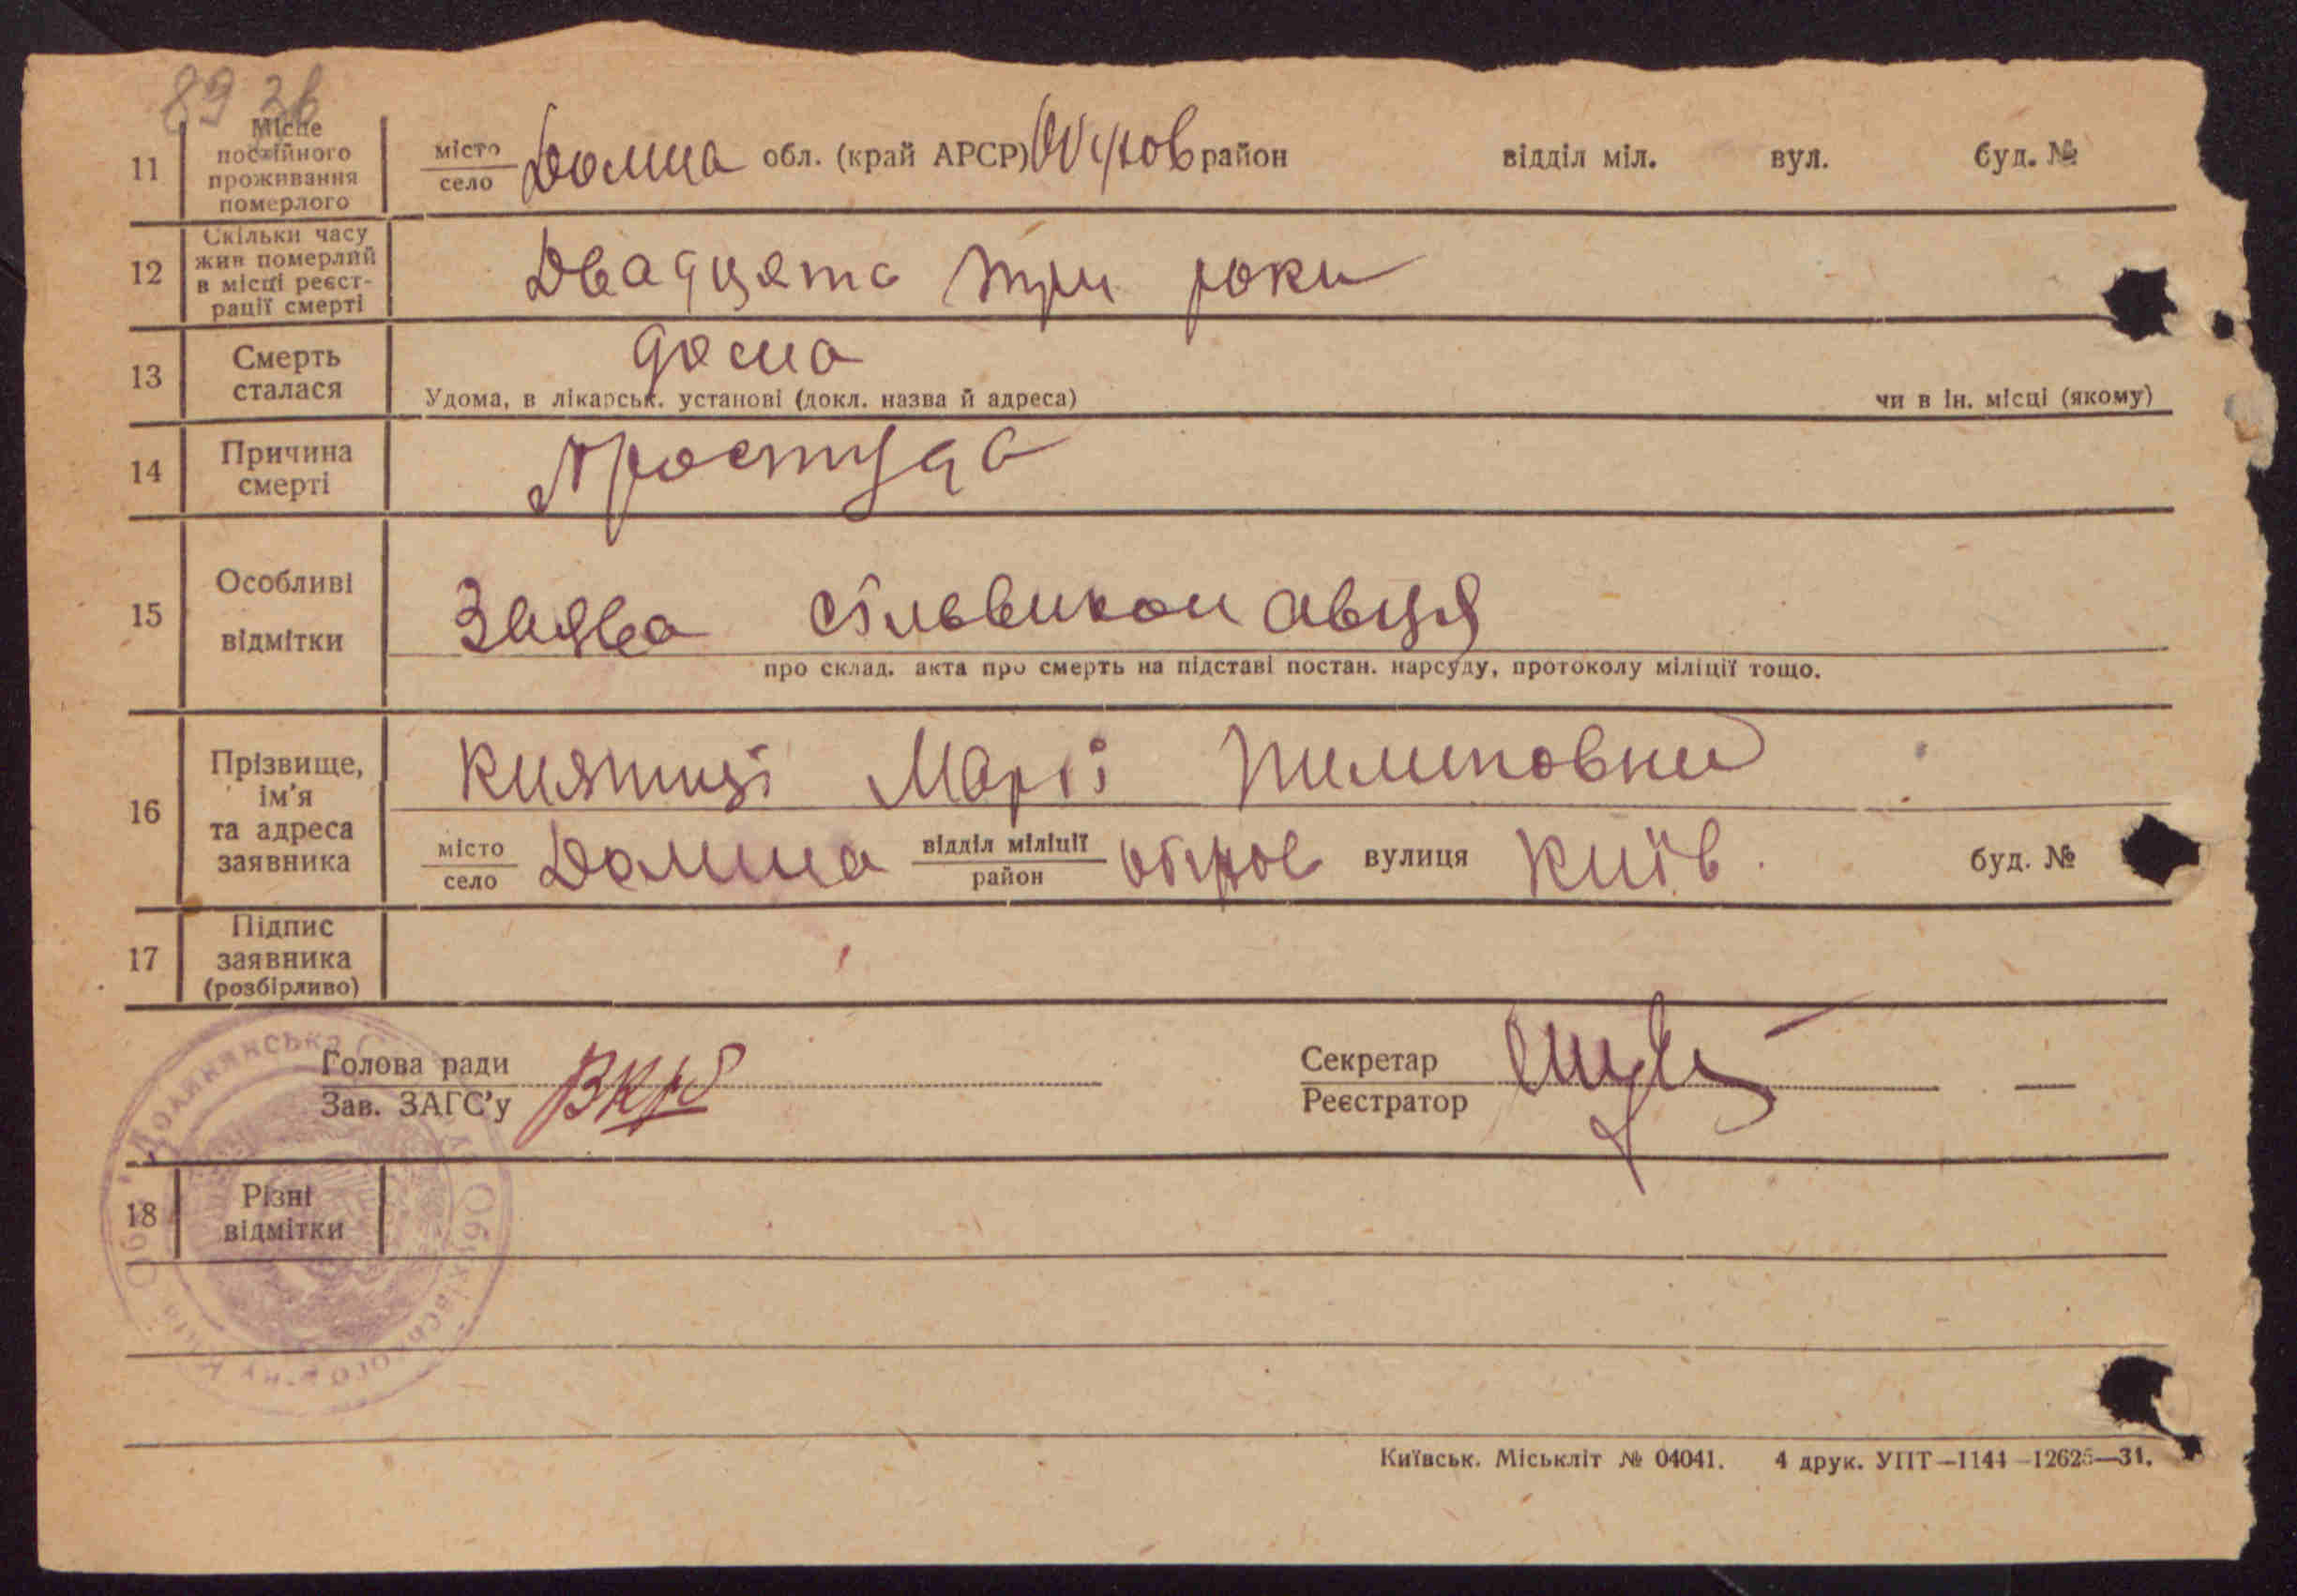 89 зв
11 Місце постійного проживання померлого місто село Долина обл. (край АРСР) Обухов район відділ міл. вул. буд. №
12 Скільки часу жив померлий в місці реєстрації смерті Двадцять три роки
13 Смерть сталася дома
Удома, в лікарськ. установі (докл. назва й адреса) чи в ін. місці (якому)
14 Причина смерті простуда
15 Особливі відмітки Заява сільвиконавця
про склад. акта про смерть на підставі постан. нарсуду, протоколу міліції тощо.
16 Прізвище, ім'я та адреса заявника Киятиці Марії Пилиповни
місто село Долина відділ міліції район Обухов вулиця Київ. буд. №
17 Підпис заявника (розбірливо)
Голова ради
Зав. ЗАГС'у
Секретар
Реєстратор
18 Різні відмітки
Київськ. Міськліт № 04041. 4 друк. УПТ—1144—12625—31.